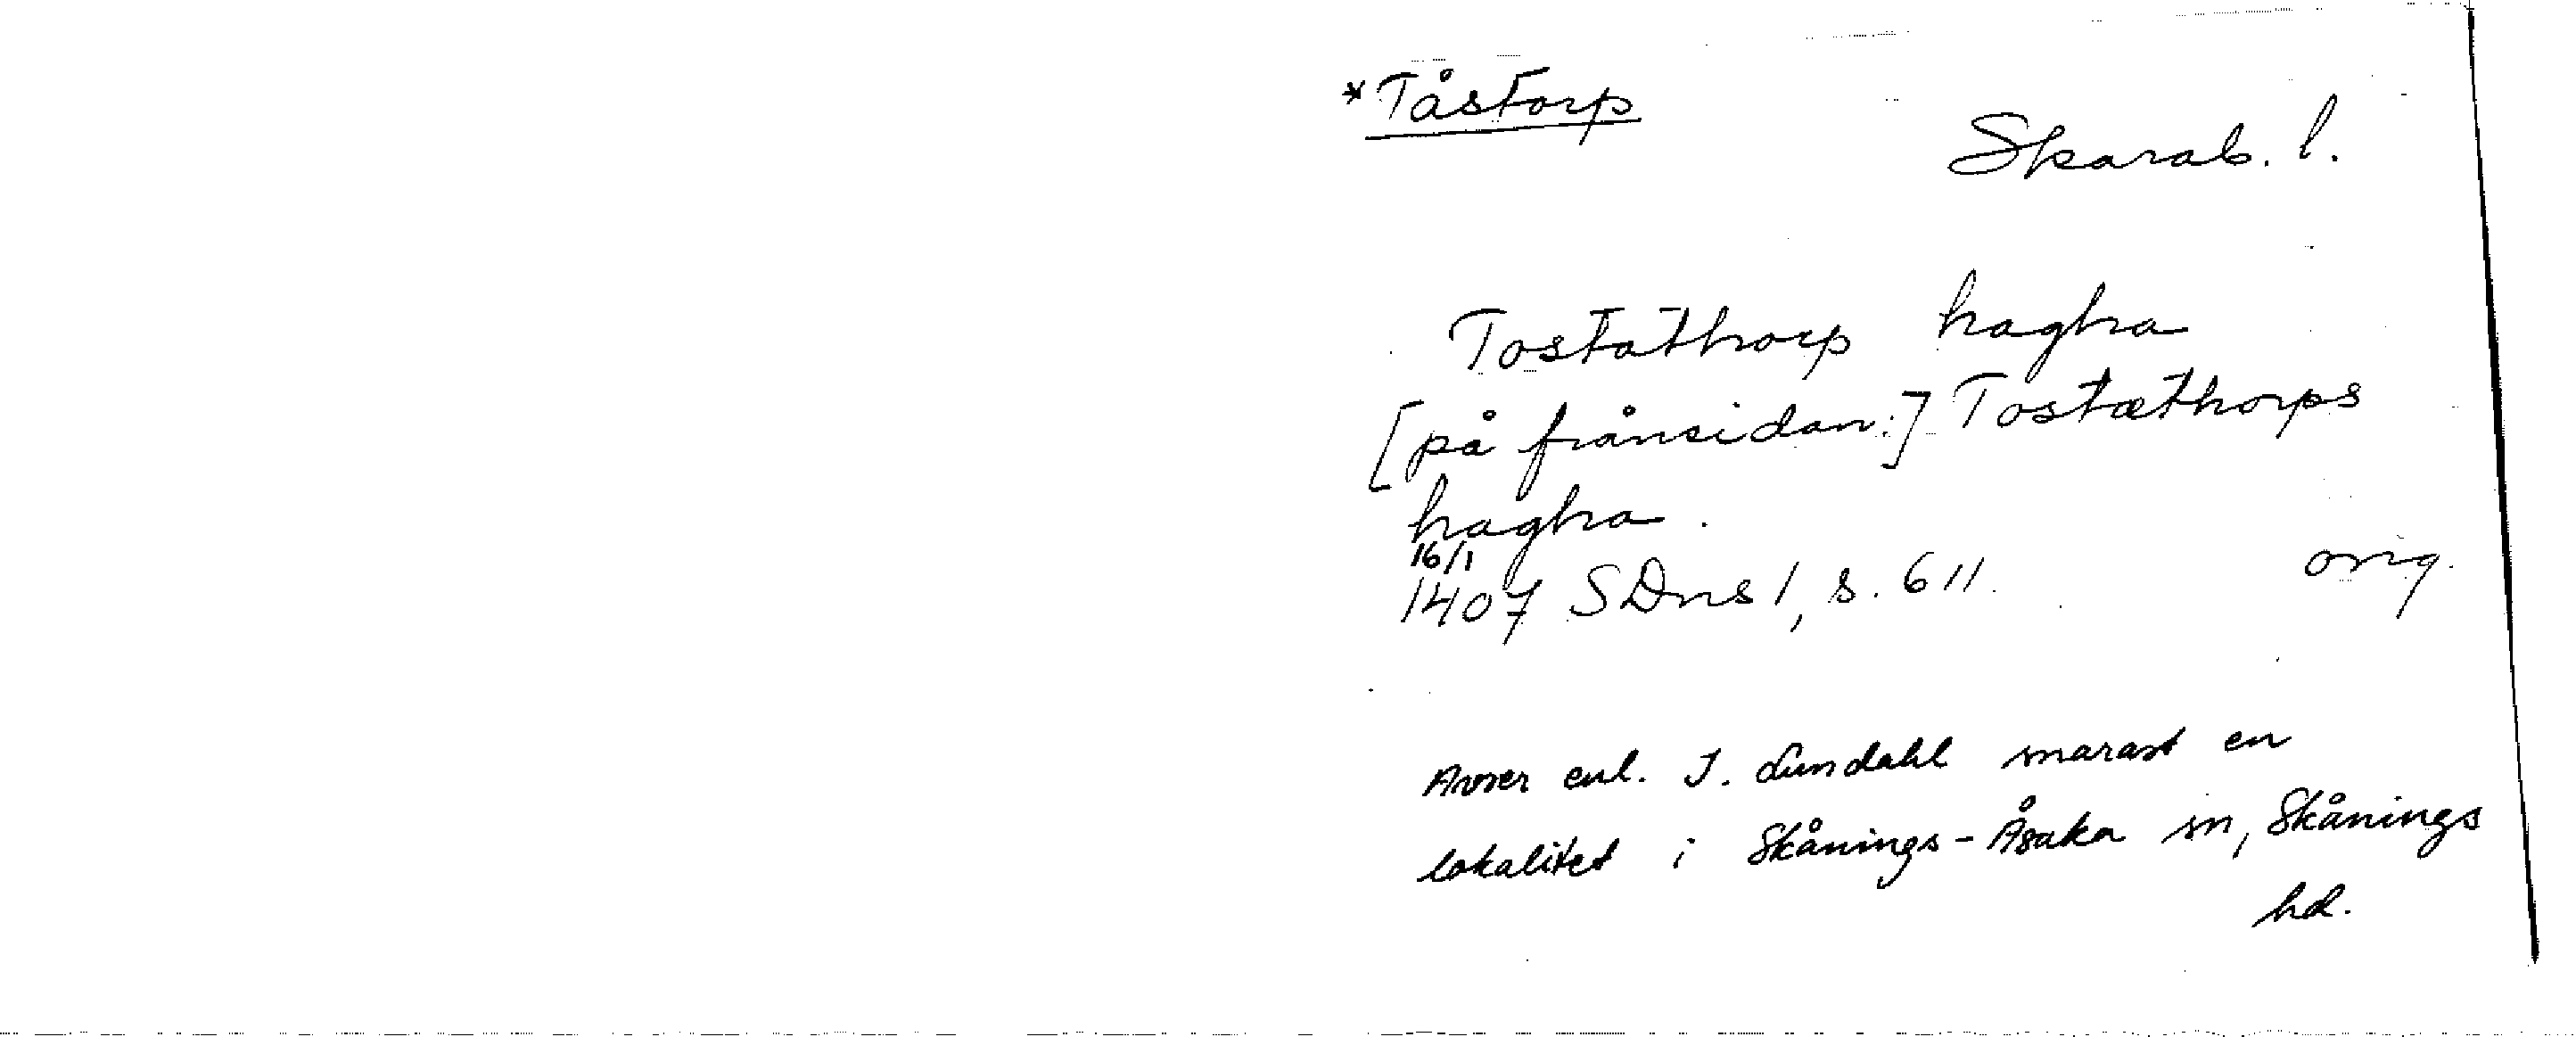 *Tåstorp
Skarab. l.
Tostathorp haghra
[på frånsidan:] Tostæthorps
haghra.
16/1
1407 SDns 1, s. 611. orig.
Avser enl. I. Lundahl snarast en
lokalitet i Skånings-Åsaka sn, Skånings
hd.